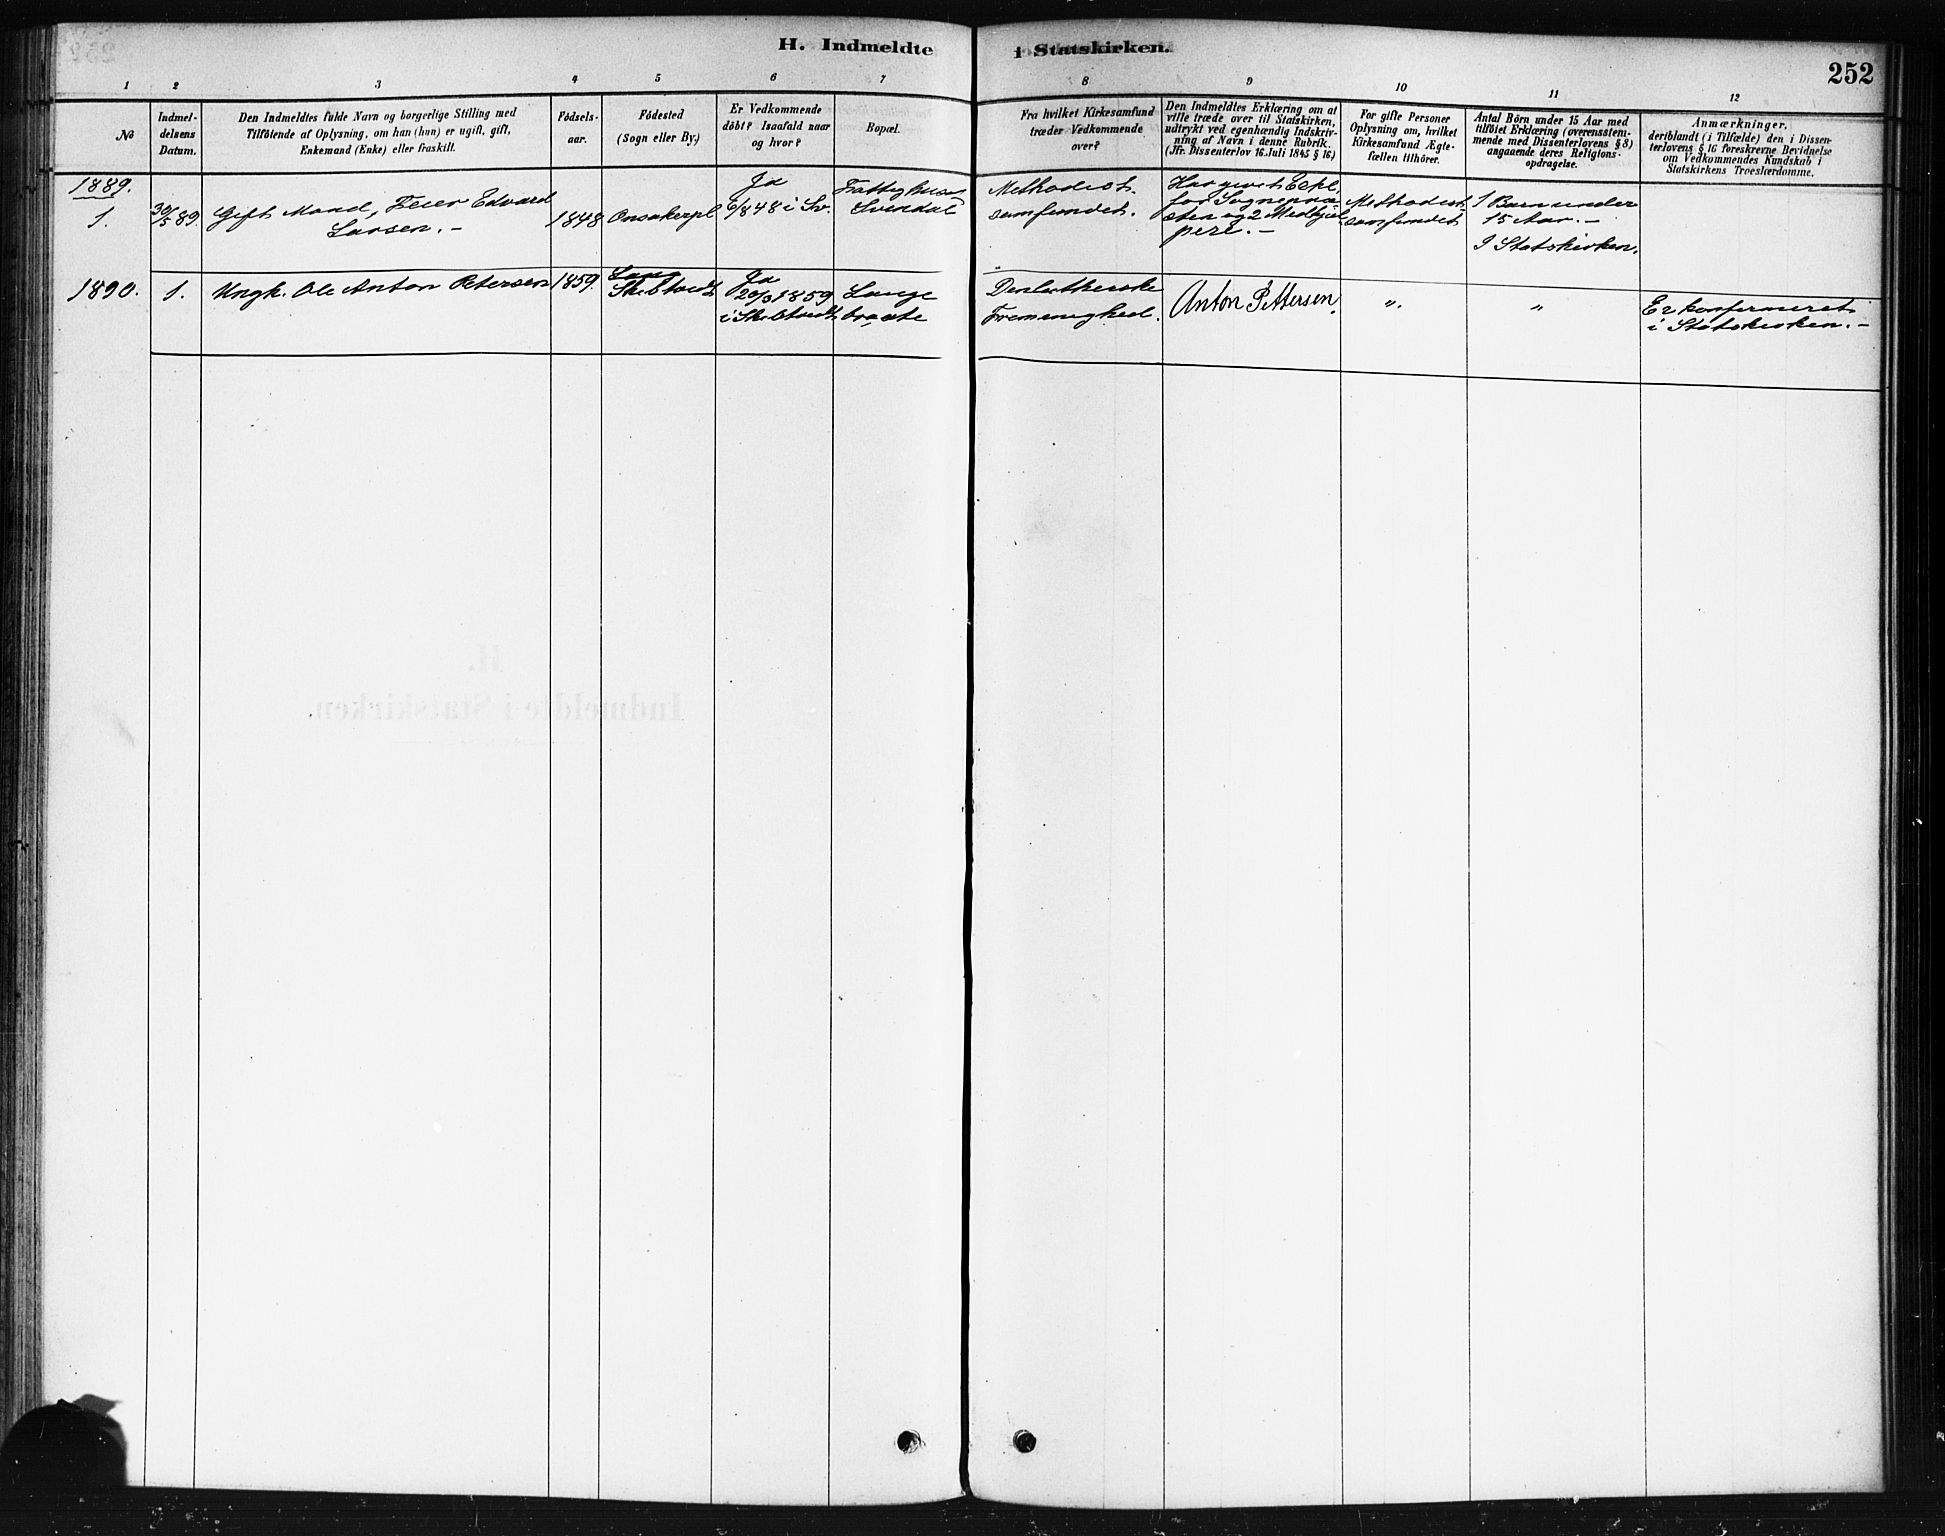 H. Indmeldte i Statskirken.
252
1 2 3 4 5 6 7 8 9 10 11 12
№
Indmel-
delsens
Datum.
Den Indmeldtes fulde Navn og borgerlige Stilling med
Tilföiende af Oplysning, om han (hun) er ugift, gift,
Enkemand (Enke) eller fraskilt.
Födsels-
aar.
Födested
(Sogn eller By.)
Er Vedkommende
döbt? Isaafald naar
og hvor?
Bopæl.
Fra hvilket Kirkesamfund
træder Vedkommende
over?
Den Indmeldtes Erklæring om at
ville træde over til Statskirken,
udtrykt ved egenhændig Indskriv-
ning af Navn i denne Rubrik.
(Jfr. Dissenterlov 16. Juli 1845 § 16.)
For gifte Personer
Oplysning om, hvilket
Kirkesamfund Ægte-
fællen tilhörer.
Antal Börn under 15 Aar med
tilföiet Erklæring (overensstem-
mende med Dissenterlovens § 8)
angaaende deres Religions-
opdragelse.
Anmærkninger,
deriblandt (i Tilfælde) den i Dissen-
terlovens § 16 foreskrevne Bevidnelse
om Vedkommendes Kundskab i
Statskirkens Troeslærdomme.
1889.
1.
30/5 89.
Gift Mand, Peder Edvard
Larsen. -
1848
Onsakerpl
Ja
6/8 48 i Sv.
Fattighuset
Svendal
Methodist
samfundet.
Har givet Erkl.
for Sognepræ
sten og 2 Medhjæl
pere. -
Methodist
samfundet
1 Barn under
15 Aar. -
I Statskirken.
1890.
1.
Ungk. Ole Anton Petersen
1859.
Skibtvedt
Ja
20/3 1859
i Skibtvedt
Lange
braate
Den lutherske
Fremenighed.
Anton Pettersen
"
"
Er konfirmeret
i Statskirken. -
H.
Indmeldte i Statskirken.